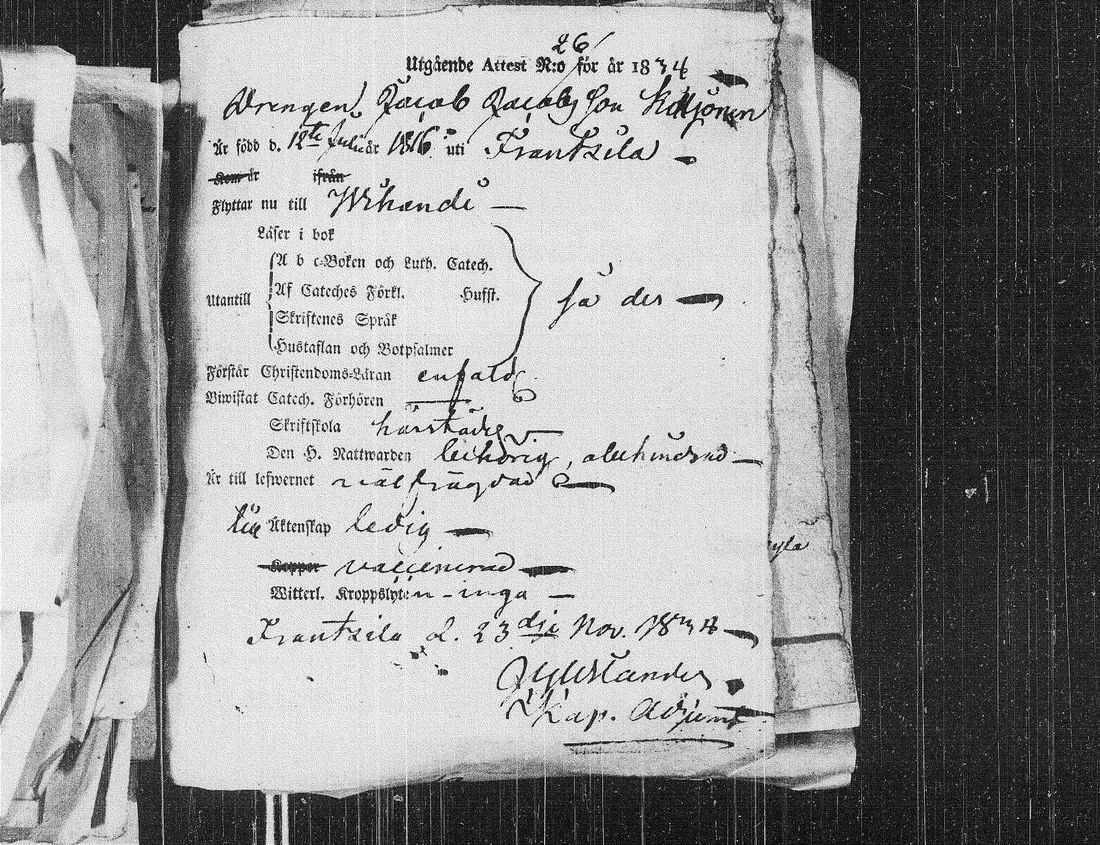 26/
Utgående Attest N:o för år 1834
Drengen Jacob Jacobsson
Är född d. 12te Julii år 1816 uti Frantsila
Kom år ifrån
Flyttar nu till Wihandi
Läser i bok
A b c-Boken och Luth. Catech.
Utantill Af Cateches Förkl. Hufst. så der
Skriftenes Språk
Hustaflan och Botpsalmer
Förstår Christendoms-Läran enfald.
Biwistat Catech. Förhören
Skriftskola härstädes
Den H. Nattwarden behörig, admitterad
Är till lefwernet oälfrägdad
till Äktenskap ledig
Kopper vaccinerad
Witterl. Kroppslyten inga
Frantsila d. 23dje Nov. 1834
Kap. Adjunct
yla